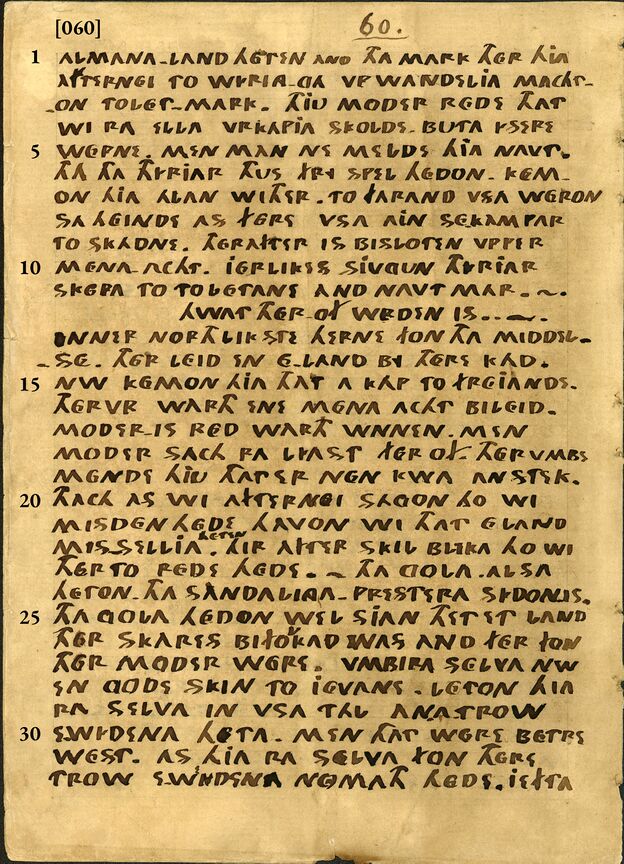 [060] 60.
1 ALMANA-LAND HETEN AND THA MARK THER HIA
AFTERNEI TO WYRIA-GA UP WANDELIA MACHT-
-ON TOLET-MARK. THIU MODER REDE THAT
WI RA ELLA URKAPIA SKOLDE. BUTA YSERE
5 WEPNE. MEN MAN NE MELDE HIA NAVT.
THA THA THYRIAR THUS FRY SPEL HEDON. KEM-
ON HIA ALAN WITHER. TO FARAND USA WERON
SA HEINDE AS FERE USA AIN SEKAMPAR
TO SKADNE. THERAFTER IS BISLOTEN UPPER
10 MENA-ACHT. IERLIKES SIUGUN THYRIAR
SKEPA TO TOLETANE AND NAVT MAR.-~.
HWAT THER-OF WRDEN IS...~.
INNER NORTHLIKSTE HERNE FON THA MIDDEL-
-SE. THER LEID EN E-LAND BY THERE KAD.
15 NW KEMON HIA THAT A KAP TO FREIANDE.
THERUR WARTH ENE MENA ACHT BILEID.
MODER-IS RED WARTH WNNEN. MEN
MODER SACH RA LYAST FER OF. THERUMBE
MENDE HIU THATER NEN KWA AN STEK.
20 THACH AS WI AFTERNEI SAGON HO WI
MISDEN HEDE HAVON WI THAT ELAND
MIS-SELLIA HETEN. HIR AFTER SKIL BLIKA HO WI
THER TO REDE HEDE.-~ THA GOLA. ALSA
HETON-THA SANDALIGA-PRESTERA SYDONIS.
25 THA GOLA HEDON WEL SIAN THET ET LAND
THER SKARES BIFOLKAD WAS AND FER FON
THER MODER WERE. UMBIRA SELVA NW
EN GODE SKIN TO IEVANE. LETON HIA
RA SELVA IN USA TAL ANA-TROW
30 E-WYDENA HETA. MEN THAT WERE BETRE
WEST. AS HIA RA SELVA FON THERE
TROW E-WENDENA NOMATH HEDE. IEFTA